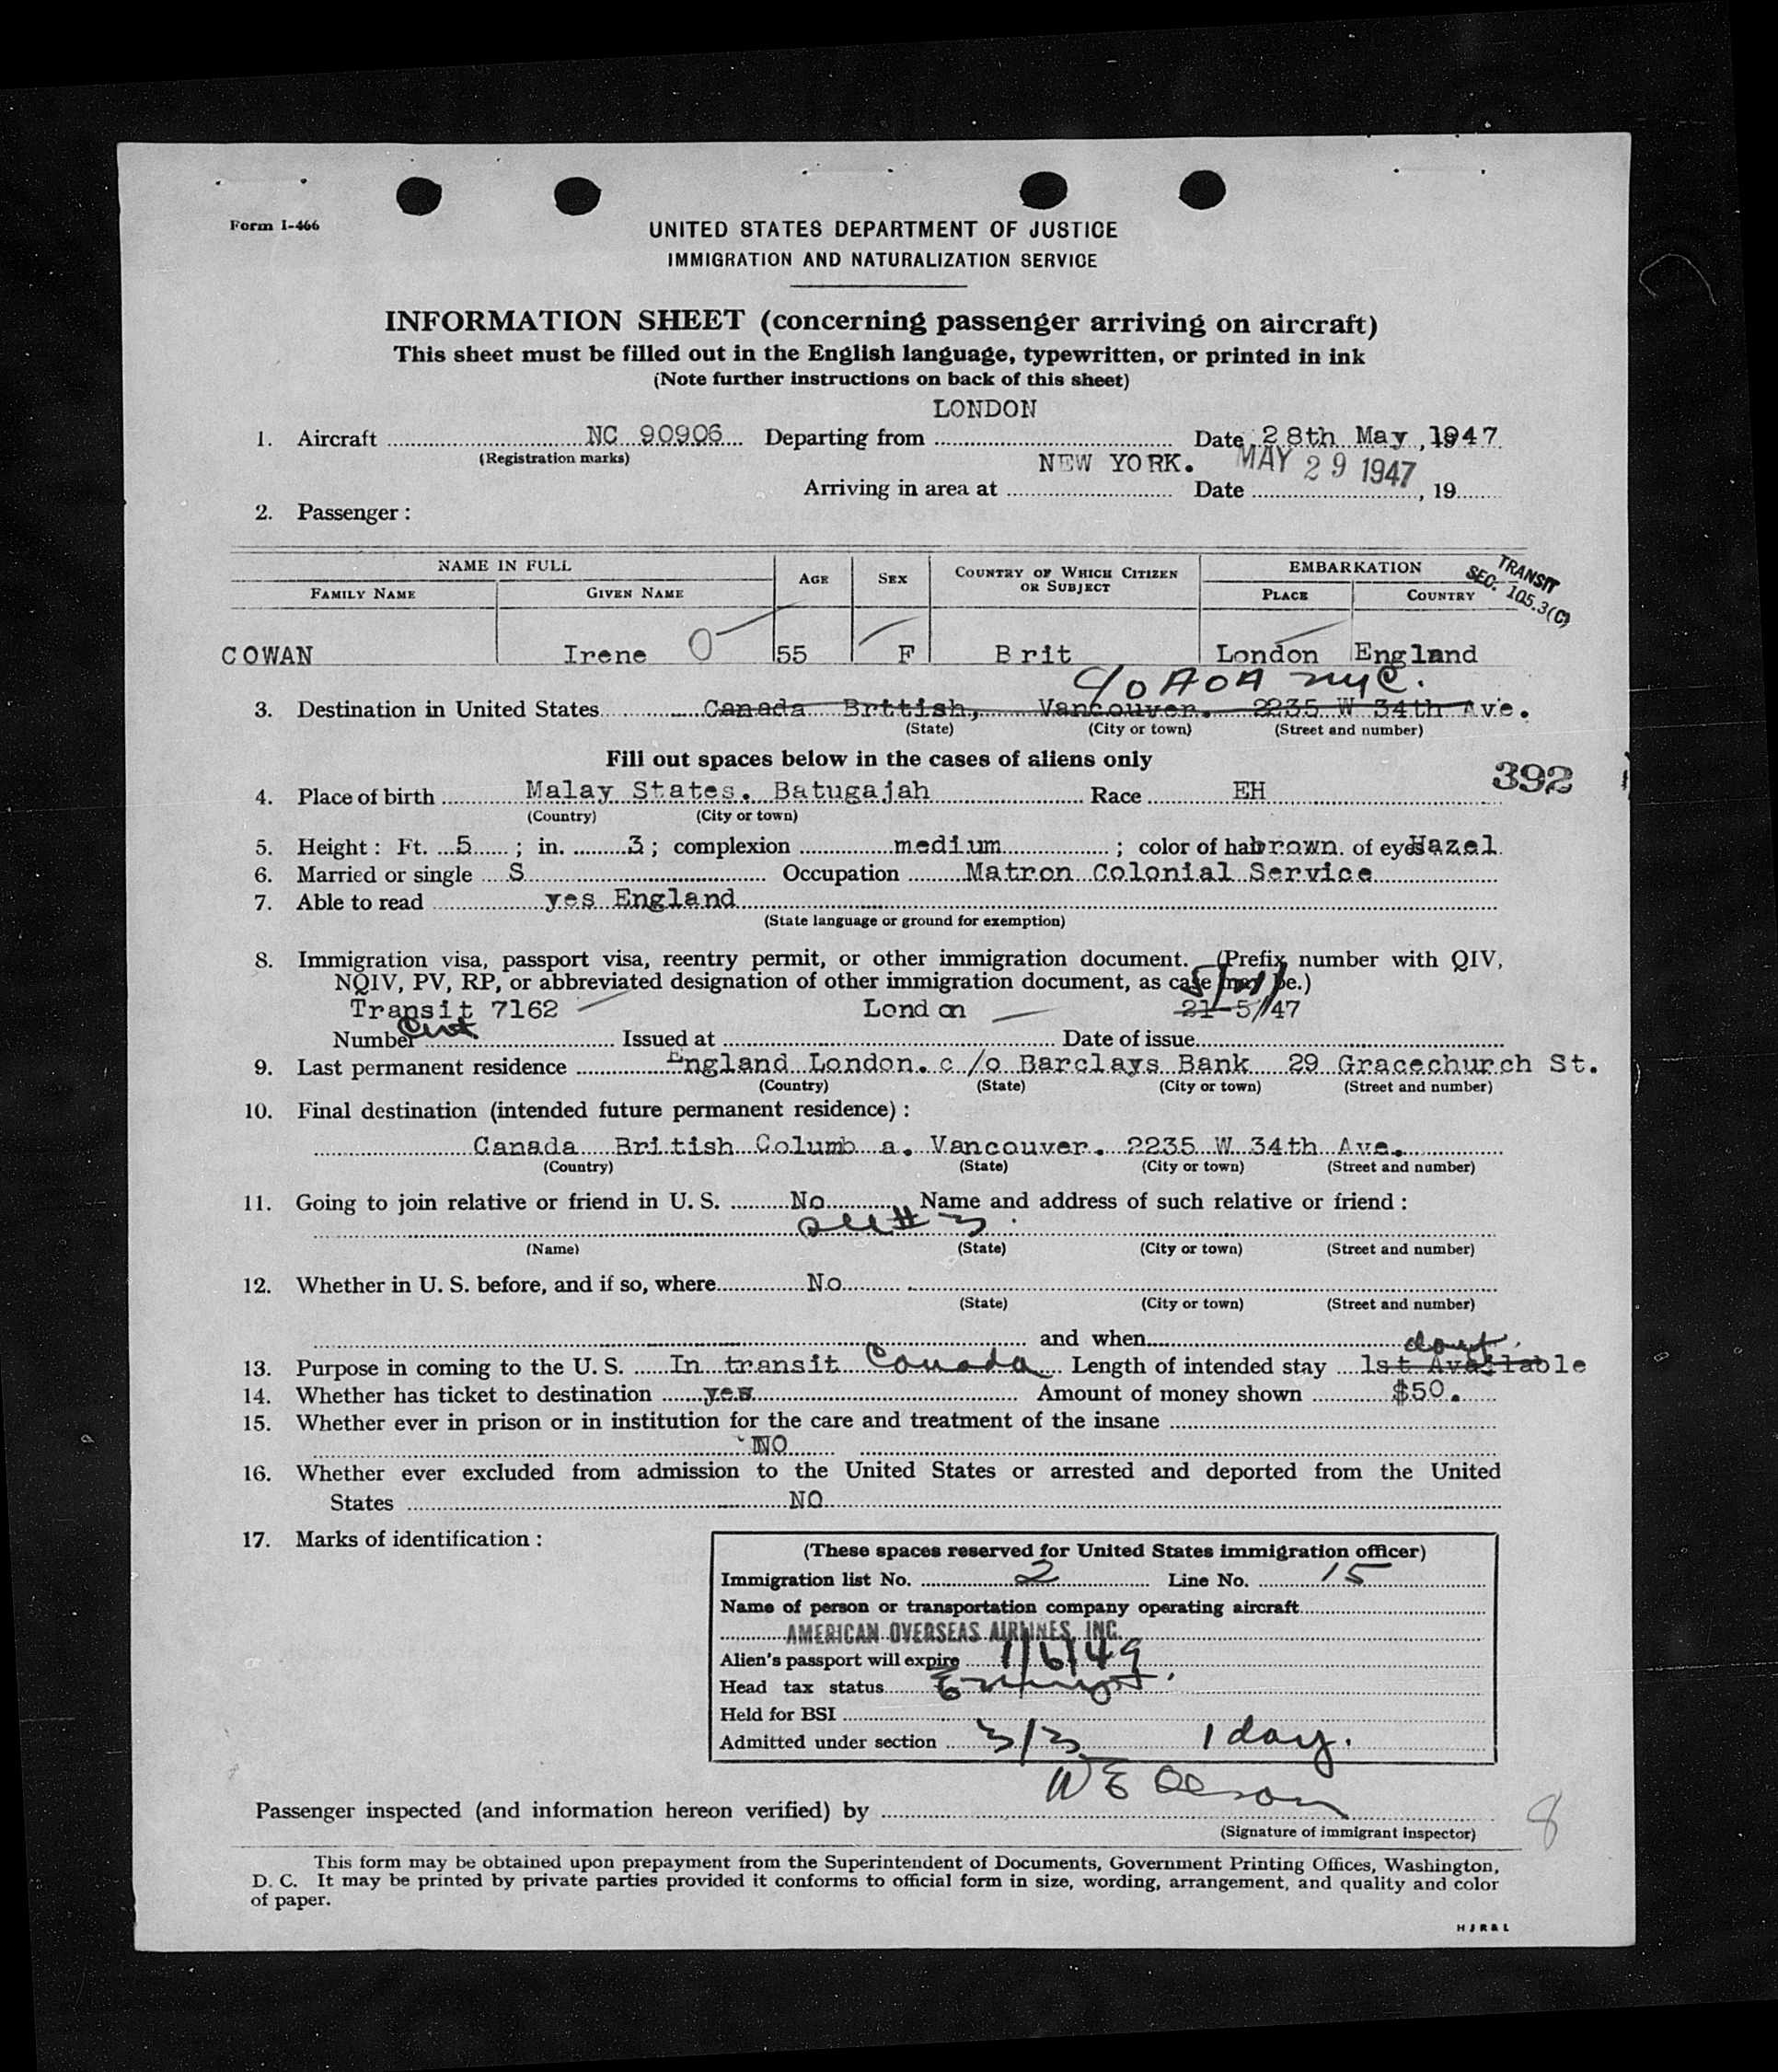 Form I-466
UNITED STATES DEPARTMENT OF JUSTICE
IMMIGRATION AND NATURALIZATION SERVICE
INFORMATION SHEET (concerning passenger arriving on aircraft)
This sheet must be filled out in the English language, typewritten, or printed in ink
(Note further instructions on back of this sheet)
LONDON
1. Aircraft NC 90906 Departing from Date 28th May, 1947
(Registration marks)
NEW YORK. MAY 29 1947
Arriving in area at Date , 19
2. Passenger :
NAME IN FULL AGE SEX COUNTRY OF WHICH CITIZEN OR SUBJECT EMBARKATION
FAMILY NAME GIVEN NAME PLACE COUNTRY
TRANSIT
SEC. 105.3(C)
COWAN Irene 0 55 F Brit London England
c/o AOA NYC.
3. Destination in United States Canada Brttish, Vancouver. 2235 W 34th Ave.
(State) (City or town) (Street and number)
Fill out spaces below in the cases of aliens only
392
4. Place of birth Malay States. Batugajah Race EH
(Country) (City or town)
5. Height : Ft. 5 ; in. 3 ; complexion medium ; color of ha brown. of eyes Hazel
6. Married or single S Occupation Matron Colonial Service
7. Able to read yes England
(State language or ground for exemption)
8. Immigration visa, passport visa, reentry permit, or other immigration document. (Prefix number with QIV,
NQIV, PV, RP, or abbreviated designation of other immigration document, as case may be.)
Transit 7162 London 21-5/47
Number Issued at Date of issue
9. Last permanent residence England London. c/o Barclays Bank 29 Gracechurch St.
(Country) (State) (City or town) (Street and number)
10. Final destination (intended future permanent residence) :
Canada British Columb a. Vancouver. 2235 W 34th Ave.
(Country) (State) (City or town) (Street and number)
11. Going to join relative or friend in U. S. No Name and address of such relative or friend :
see # 3.
(Name) (State) (City or town) (Street and number)
12. Whether in U. S. before, and if so, where No
(State) (City or town) (Street and number)
and when
13. Purpose in coming to the U. S. In transit Canada Length of intended stay 1st Available
14. Whether has ticket to destination yes Amount of money shown $50.
15. Whether ever in prison or in institution for the care and treatment of the insane
NO
16. Whether ever excluded from admission to the United States or arrested and deported from the United
States NO
17. Marks of identification :
(These spaces reserved for United States immigration officer)
Immigration list No. 2 Line No. 15
Name of person or transportation company operating aircraft
AMERICAN OVERSEAS AIRLINES, INC.
Alien's passport will expire 1/6/49
Head tax status Exempt.
Held for BSI
Admitted under section 3/3 1 day.
W E Olson
Passenger inspected (and information hereon verified) by
(Signature of immigrant inspector)
8
This form may be obtained upon prepayment from the Superintendent of Documents, Government Printing Offices, Washington,
D. C. It may be printed by private parties provided it conforms to official form in size, wording, arrangement, and quality and color
of paper.
H J R & L